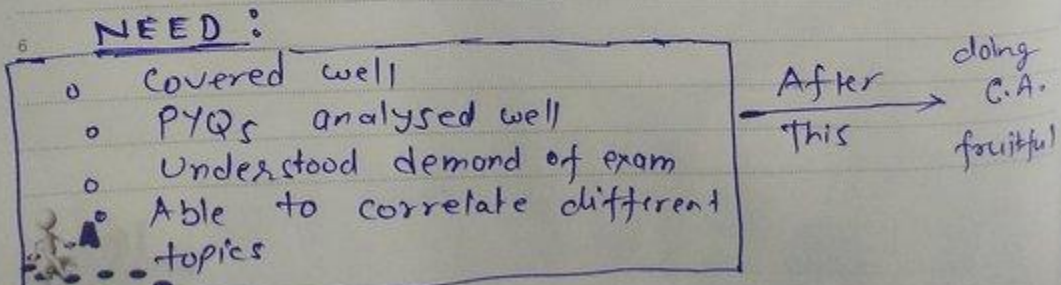 6
NEED :
Covered well
PYQs analysed well
Understood demand of exam
Able to correlate different
topics
After
This
doing
C.A.
fruitful